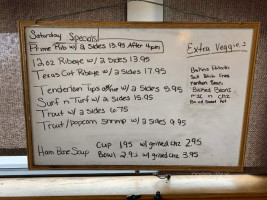 Saturday Specials
Prime Rib w/ 2 Sides 15.95 After 4pm
12oz Ribeye w/ 2 Sides 13.95
Texas Cut Ribeye w/ 2 Sides 17.95
Tenderloin Tips w/ 2 Sides 8.95
Surf n Turf w/ 2 Sides 15.95
Trout w/ 2 Sides 6.75
Trout/popcorn shrimp w/ 2 Sides 9.95
Ham Bone Soup Cup 1.95 w/ grilled chz 2.95
Bowl 2.95 w/ grilled chz 3.95
Extra Veggies
Baked Potato
Baked Beans
mac n chz